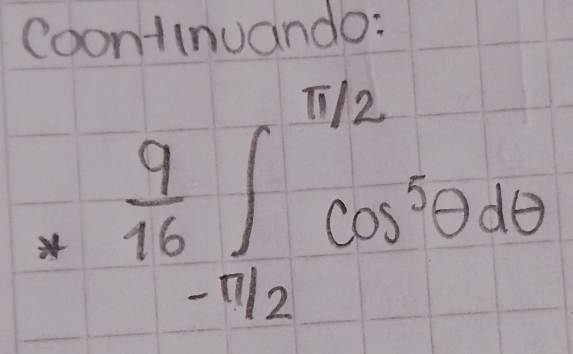 Coontinuando:
* 9/16 ∫_{-π/2}^{π/2} cos⁵θ dθ